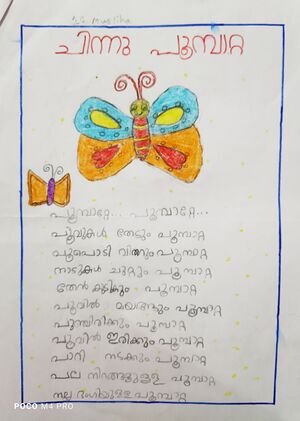 ചിന്നു പൂമ്പാറ്റ
പൂമ്പാറ്റേ... പൂമ്പാറ്റേ...
പൂവുകൾ തേടും പൂമ്പാറ്റ
പൂമ്പൊടി വിതറും പൂമ്പാറ്റ
നാടുകൾ ചുറ്റും പൂമ്പാറ്റ
തേൻ കുടിക്കും പൂമ്പാറ്റ
പൂവിൽ മയങ്ങും പൂമ്പാറ്റ
പുഞ്ചിരിക്കും പൂമ്പാറ്റ
പൂവിൽ ഇരിക്കും പൂമ്പാറ്റ
പാറി നടക്കും പൂമ്പാറ്റ
പല നിറങ്ങളുള്ള പൂമ്പാറ്റ
നല്ല ഭംഗിയുള്ള പൂമ്പാറ്റ
POCO M4 PRO